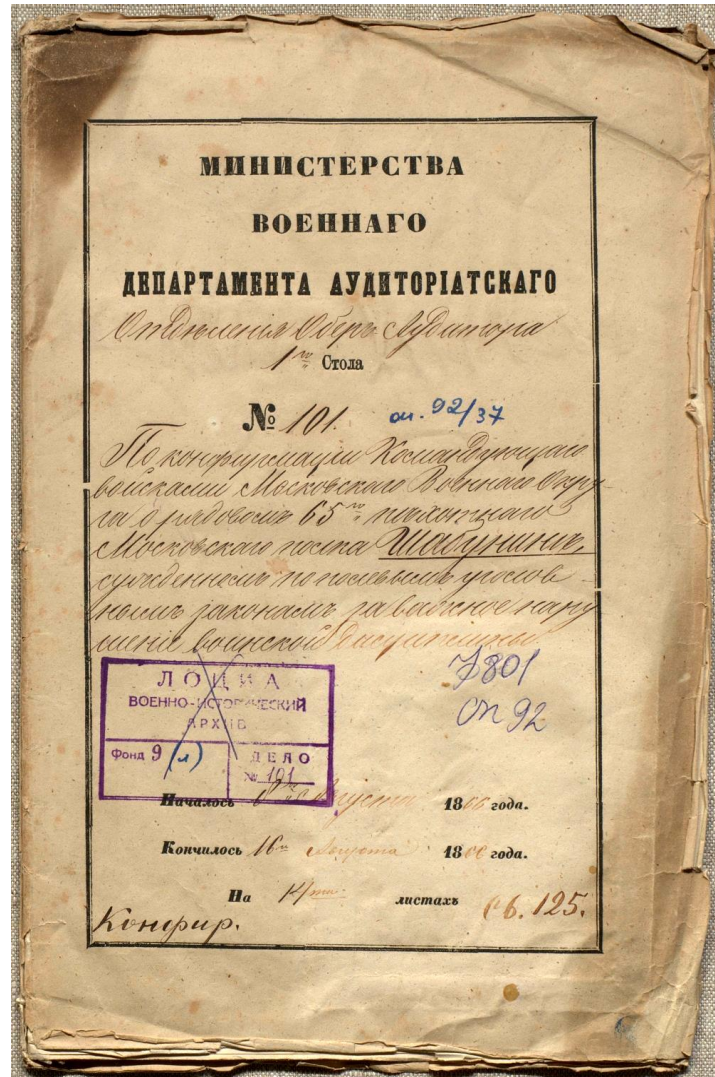 МИНИСТЕРСТВА
ВОЕННАГО
ДЕПАРТАМЕНТА АУДИТОРІАТСКАГО
Отдѣленія Оберъ Аудитора
1го Стола
№ 101. оп. 92/37
По конфирмаціи Командующаго
войсками Московскаго Военнаго Окру-
га о рядовомъ 65го пѣхотнаго
Московскаго полка Шабунинѣ,
сужденномъ по полевымъ уголов-
нымъ законамъ за важное нару
шеніе воинской дисциплины.
ЛОЦИА
ВОЕННО-ИСТОРИЧЕСКИЙ
АРХИВ
Фонд 9 (л)
ДЕЛО
№ 101
Ф 801
Оп 92
Началось Августа 1866 года.
Кончилось 16го Августа 1866 года.
На 14ти листахъ
св. 125.
Конфир.